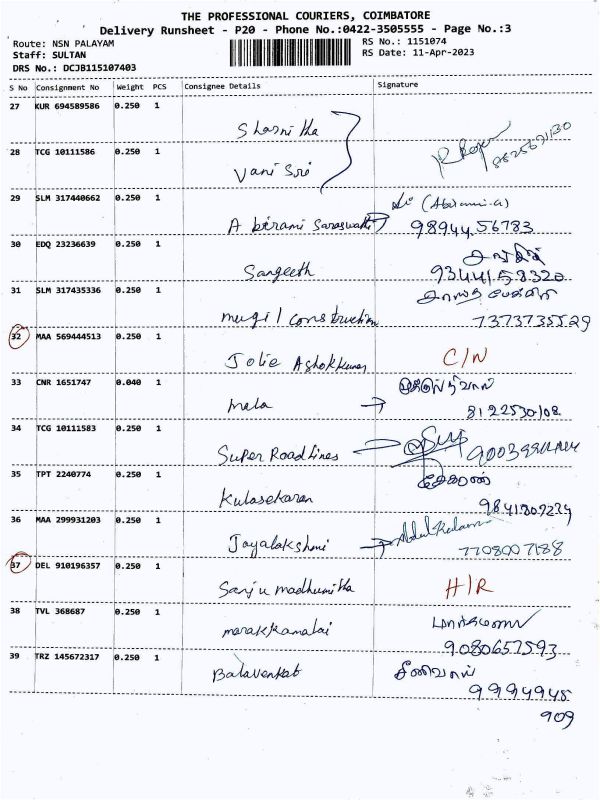 THE PROFESSIONAL COURIERS, COIMBATORE
Delivery Runsheet - P20 - Phone No.:0422-3505555 - Page No.:3
Route: NSN PALAYAM
Staff: SULTAN
DRS No.: DCJB115107403
RS No.: 1151074
RS Date: 11-Apr-2023
S No Consignment No Weight PCS Consignee Details Signature
27 KUR 694589586 0.250 1
Sharnitha
28 TCG 10111586 0.250 1
Vani Sri
29 SLM 317440662 0.250 1
(Abirami.a)
Abirami Saraswathi 98944 56783
30 EDQ 23236639 0.250 1
Sangeeth 9344158320
31 SLM 317435336 0.250 1
mugil construction 7373735529
32 MAA 569444513 0.250 1
Jolie Ashokkumar C/N
33 CNR 1651747 0.040 1
mala 8122530108
34 TCG 10111583 0.250 1
Super Road Lines
35 TPT 2240774 0.250 1
Kulasekaran
36 MAA 299931203 0.250 1
Abdul Kalam
Jayalakshmi 7708007188
37 DEL 910196357 0.250 1
Sanju madhumitha H/R
38 TVL 368687 0.250 1
marakkamalai 9080657593
39 TRZ 145672317 0.250 1
Balavenkat 9994948
909